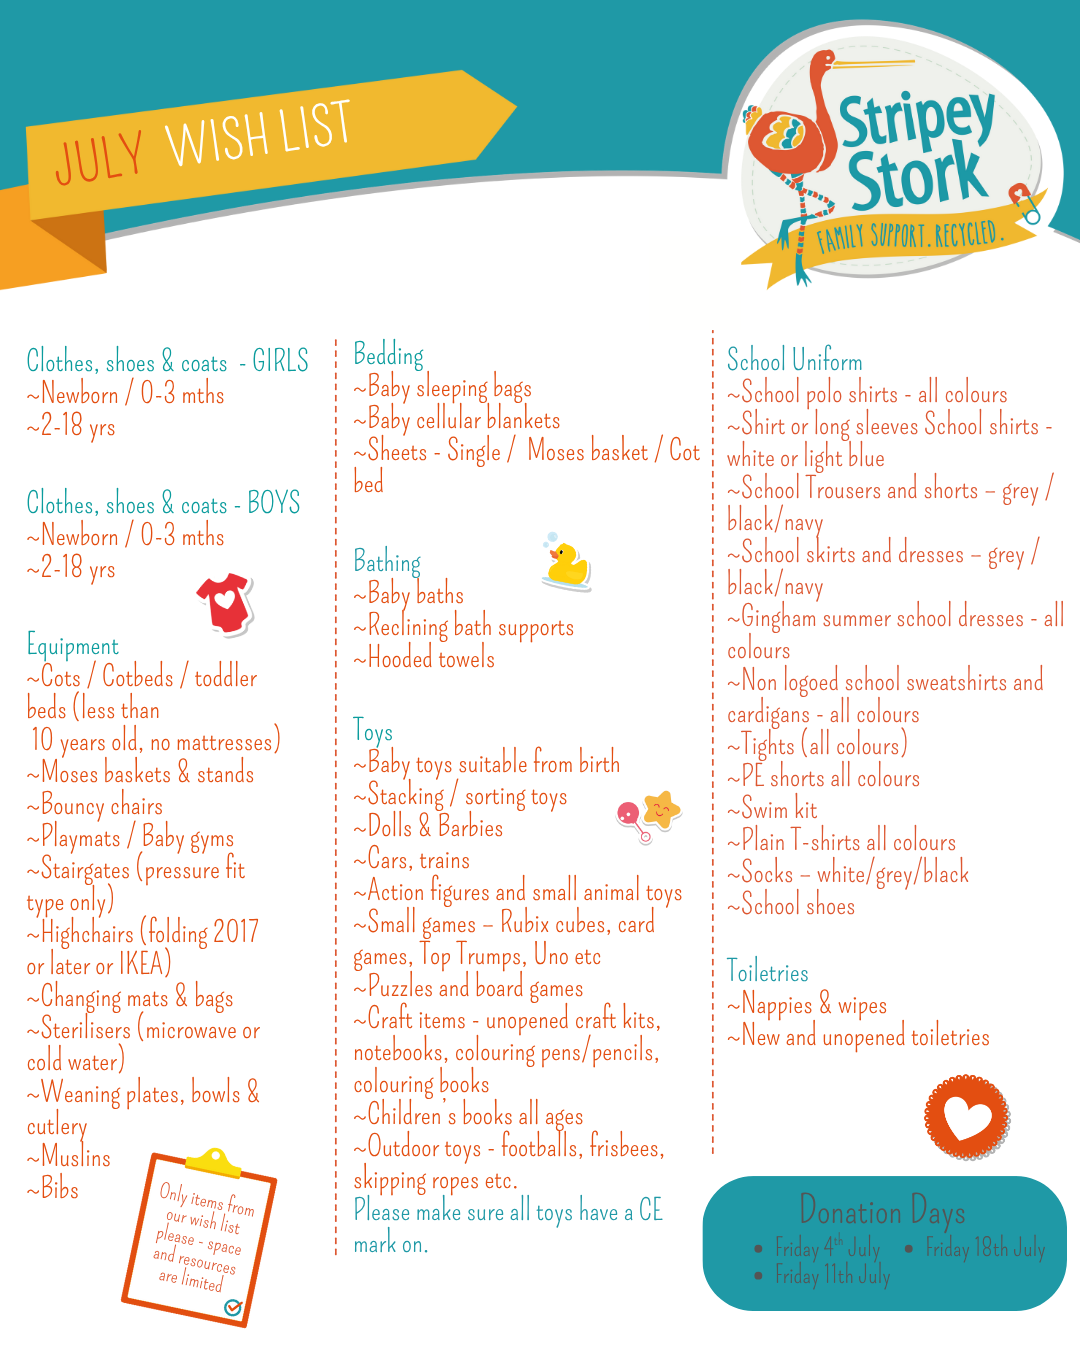 JULY WISH LIST
Stripey
Stork
FAMILY SUPPORT. RECYCLED.
Clothes, shoes & coats - GIRLS
~Newborn / 0-3 mths
~2-18 yrs
Clothes, shoes & coats - BOYS
~Newborn / 0-3 mths
~2-18 yrs
Equipment
~Cots / Cotbeds / toddler
beds (less than
10 years old, no mattresses)
~Moses baskets & stands
~Bouncy chairs
~Playmats / Baby gyms
~Stairgates (pressure fit
type only)
~Highchairs (folding 2017
or later or IKEA)
~Changing mats & bags
~Sterilisers (microwave or
cold water)
~Weaning plates, bowls &
cutlery
~Muslins
~Bibs
Only items from
our wish list
please - space
and resources
are limited
Bedding
~Baby sleeping bags
~Baby cellular blankets
~Sheets - Single / Moses basket / Cot
bed
Bathing
~Baby baths
~Reclining bath supports
~Hooded towels
Toys
~Baby toys suitable from birth
~Stacking / sorting toys
~Dolls & Barbies
~Cars, trains
~Action figures and small animal toys
~Small games – Rubix cubes, card
games, Top Trumps, Uno etc
~Puzzles and board games
~Craft items - unopened craft kits,
notebooks, colouring pens/pencils,
colouring books
~Children's books all ages
~Outdoor toys - footballs, frisbees,
skipping ropes etc.
Please make sure all toys have a CE
mark on.
School Uniform
~School polo shirts - all colours
~Shirt or long sleeves School shirts -
white or light blue
~School Trousers and shorts – grey /
black/navy
~School skirts and dresses – grey /
black/navy
~Gingham summer school dresses - all
colours
~Non logoed school sweatshirts and
cardigans - all colours
~Tights (all colours)
~PE shorts all colours
~Swim kit
~Plain T-shirts all colours
~Socks – white/grey/black
~School shoes
Toiletries
~Nappies & wipes
~New and unopened toiletries
Donation Days
• Friday 4th July
• Friday 11th July
• Friday 18th July